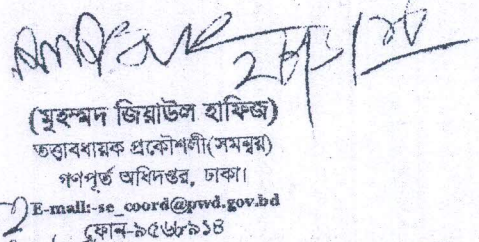 (মুহম্মদ জিয়াউল হাফিজ)
তত্ত্বাবধায়ক প্রকৌশলী(সমন্বয়)
গণপূর্ত অধিদপ্তর, ঢাকা।
E-mail:-se_coord@pwd.gov.bd
ফোন-৯৫৬৮৯১৪